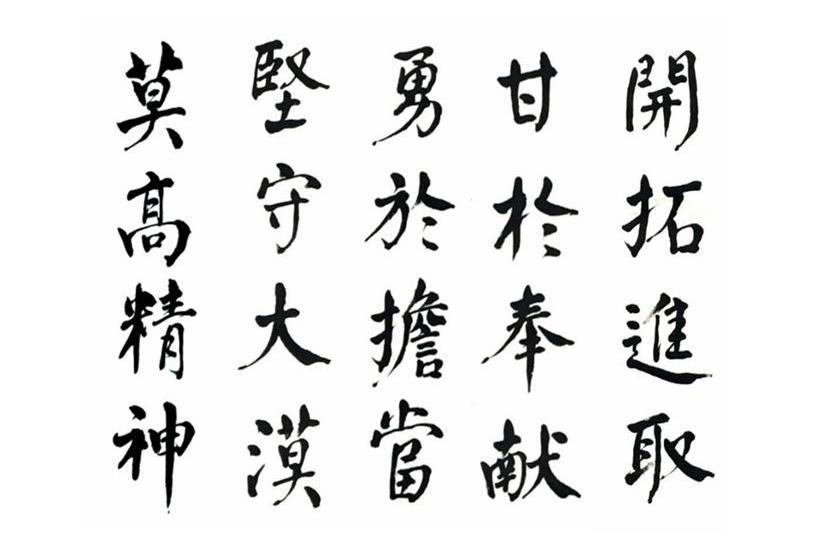 莫高精神
堅守大漠
勇於擔當
甘於奉献
開拓進取